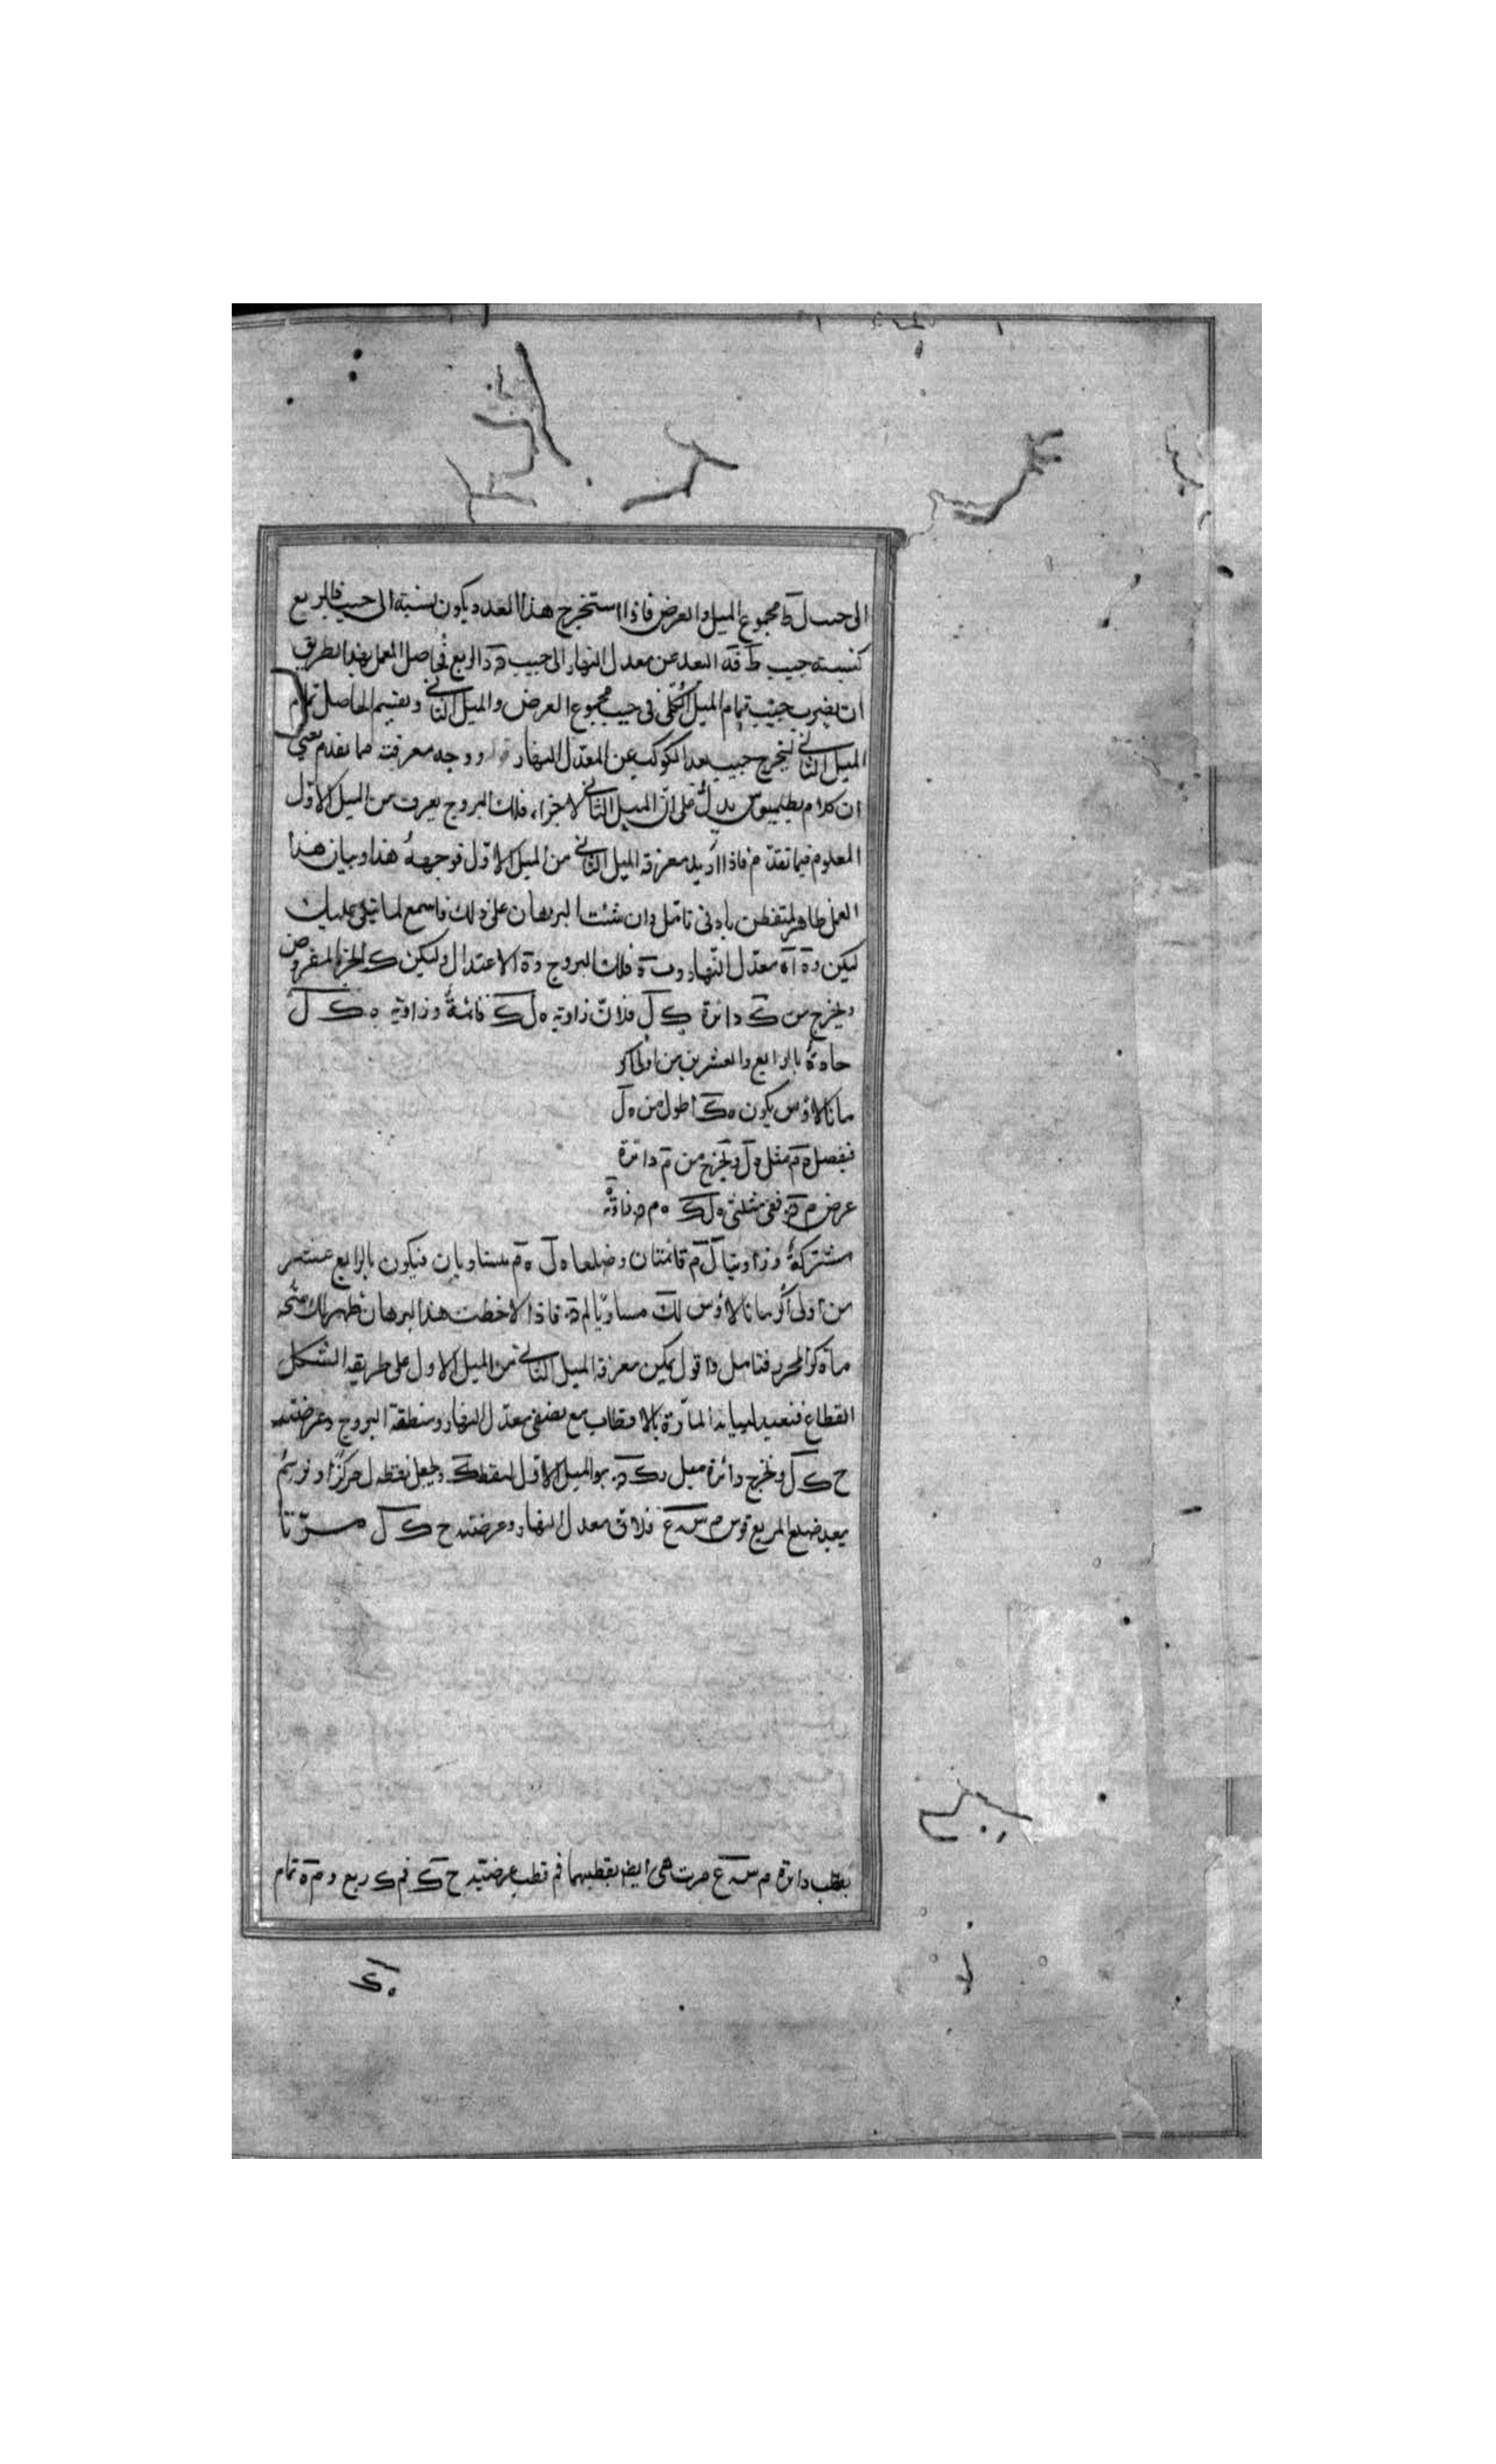 الى جيب ل ط مجموع الميل والعرض فاذا استخرج هذا العدد يكون نسبته الى جيب الربع
كنسبة جيب ط قه البعد عن معدل النهار الى جيب الربع فحاصل العمل بهذا الطريق
ان يضرب جيب تمام الميل الكلى فى جيب مجموع العرض والميل الثانى ويقسم الحاصل تمام
الميل الثانى ليخرج جيب بعد الكوكب عن المعدل النهار ووجه معرفته مما تقدم يعنى
ان كلام بطلميوس يدل على ان الميل الثانى لاجزاء فلك البروج يعرف من الميل الاول
المعلوم فيما تقدم فاذا اريد معرفة الميل الثانى من الميل الاول فوجهه هذا وبيان هذا
العمل ظاهر لمتفطن بادنى تامل وان شئت البرهان على ذلك فاسمع لما تتلى عليك
ليكن اه معدل النهار و ب ه فلك البروج و ه الاعتدال وليكن ك الجزء المفروض
ولخرج من ك دائرة ك ل فلان زاوية ه ل ك قائمة وزاوية ه ك ل
حادة بالرابع والعشرين من اولى اكر
مانالاؤس يكون ه ك اطول من ه ل
فنفصل ه م مثل ه ل ونخرج من م دائرة
عرض م ففى مثلثى ه ل ك ه م زاوية
مشتركة وزاويتا ل م قائمتان وضلعا ه ل ه م متساويان فيكون بالرابع عشر
من اولى اكر مانالاؤس ل ك مساويا لم فاذا لاحظت هذا البرهان ظهر لك صحة
ما ذكره المحرر فتامل واقول يمكن معرفة الميل الثانى من الميل الاول على طريقة الشكل
القطاع فنعيد لبيانه المارة بالاقطاب مع نصفى معدل النهار ومنطقة البروج وعرضية
ح ك ل ونخرج دائرة ميل الميل الاول لنقطة ك ونجعل نقطة ل مركزا ونرسم
ببعد ضلع المربع قوس م س ع فلان معدل النهار وعرضية ح ك ل مرتا
بقطب دائرة م س ع مرت هى ايض بقطبيهما فم قطب عرضية ح ك فم ك ربع و م ه تمام
ه ك